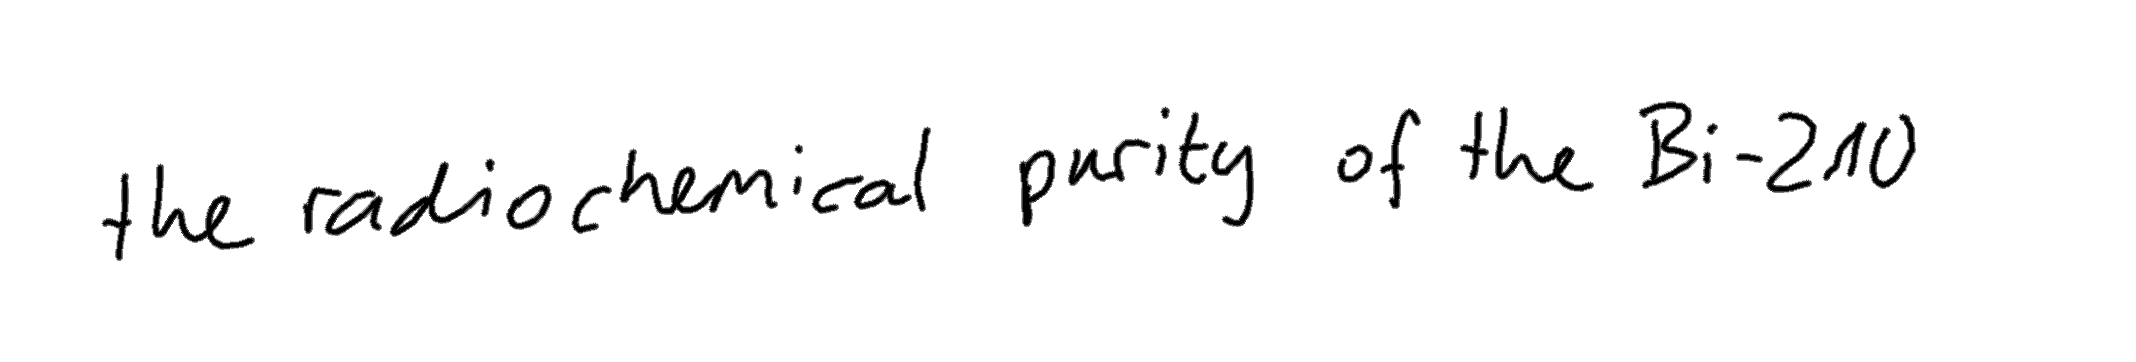 the radiochemical purity of the Bi-210